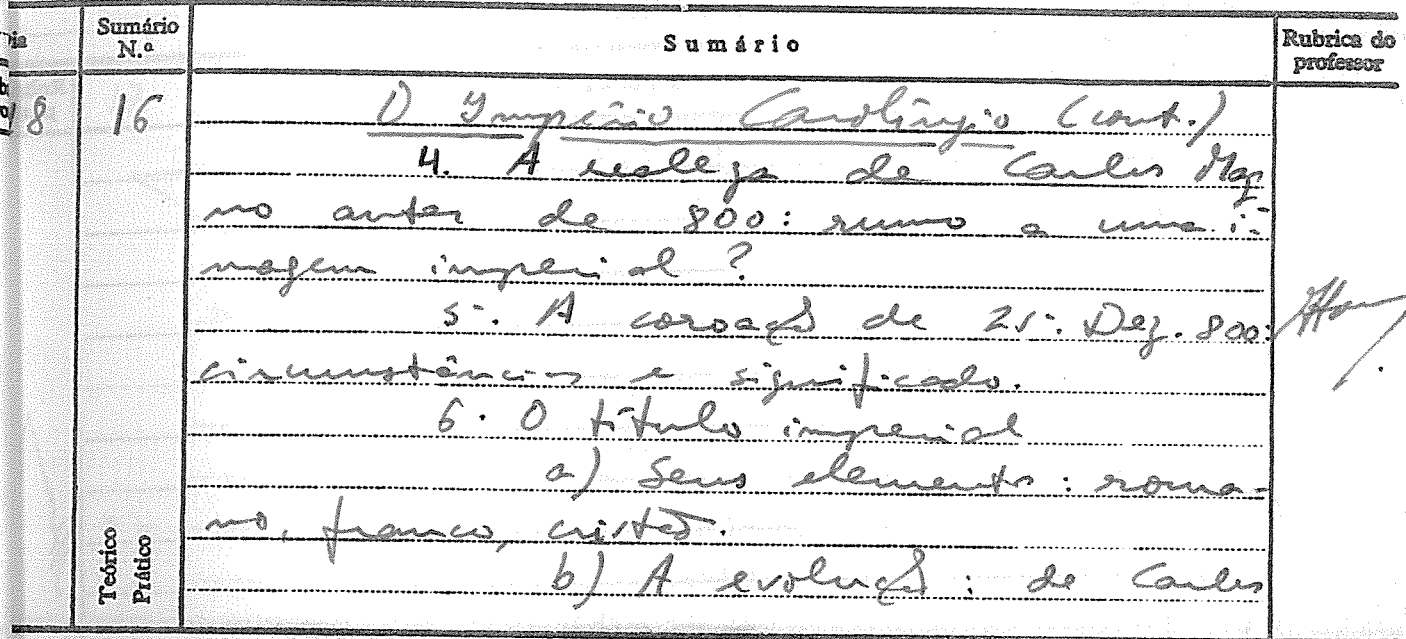 Dia
Sumário N.º
Sumário
Rubrica do professor
8
16
O Império Carolíngio (cont.)
4. A realeza de Carlos Mag
no antes de 800: rumo a uma i-
magem imperial?
5. A coroação de 25. Dez. 800:
circunstâncias e significado.
6. O título imperial
a) Seus elementos: roma-
no, franco, cristão.
b) A evolução: de Carlos
Teórico
Prático